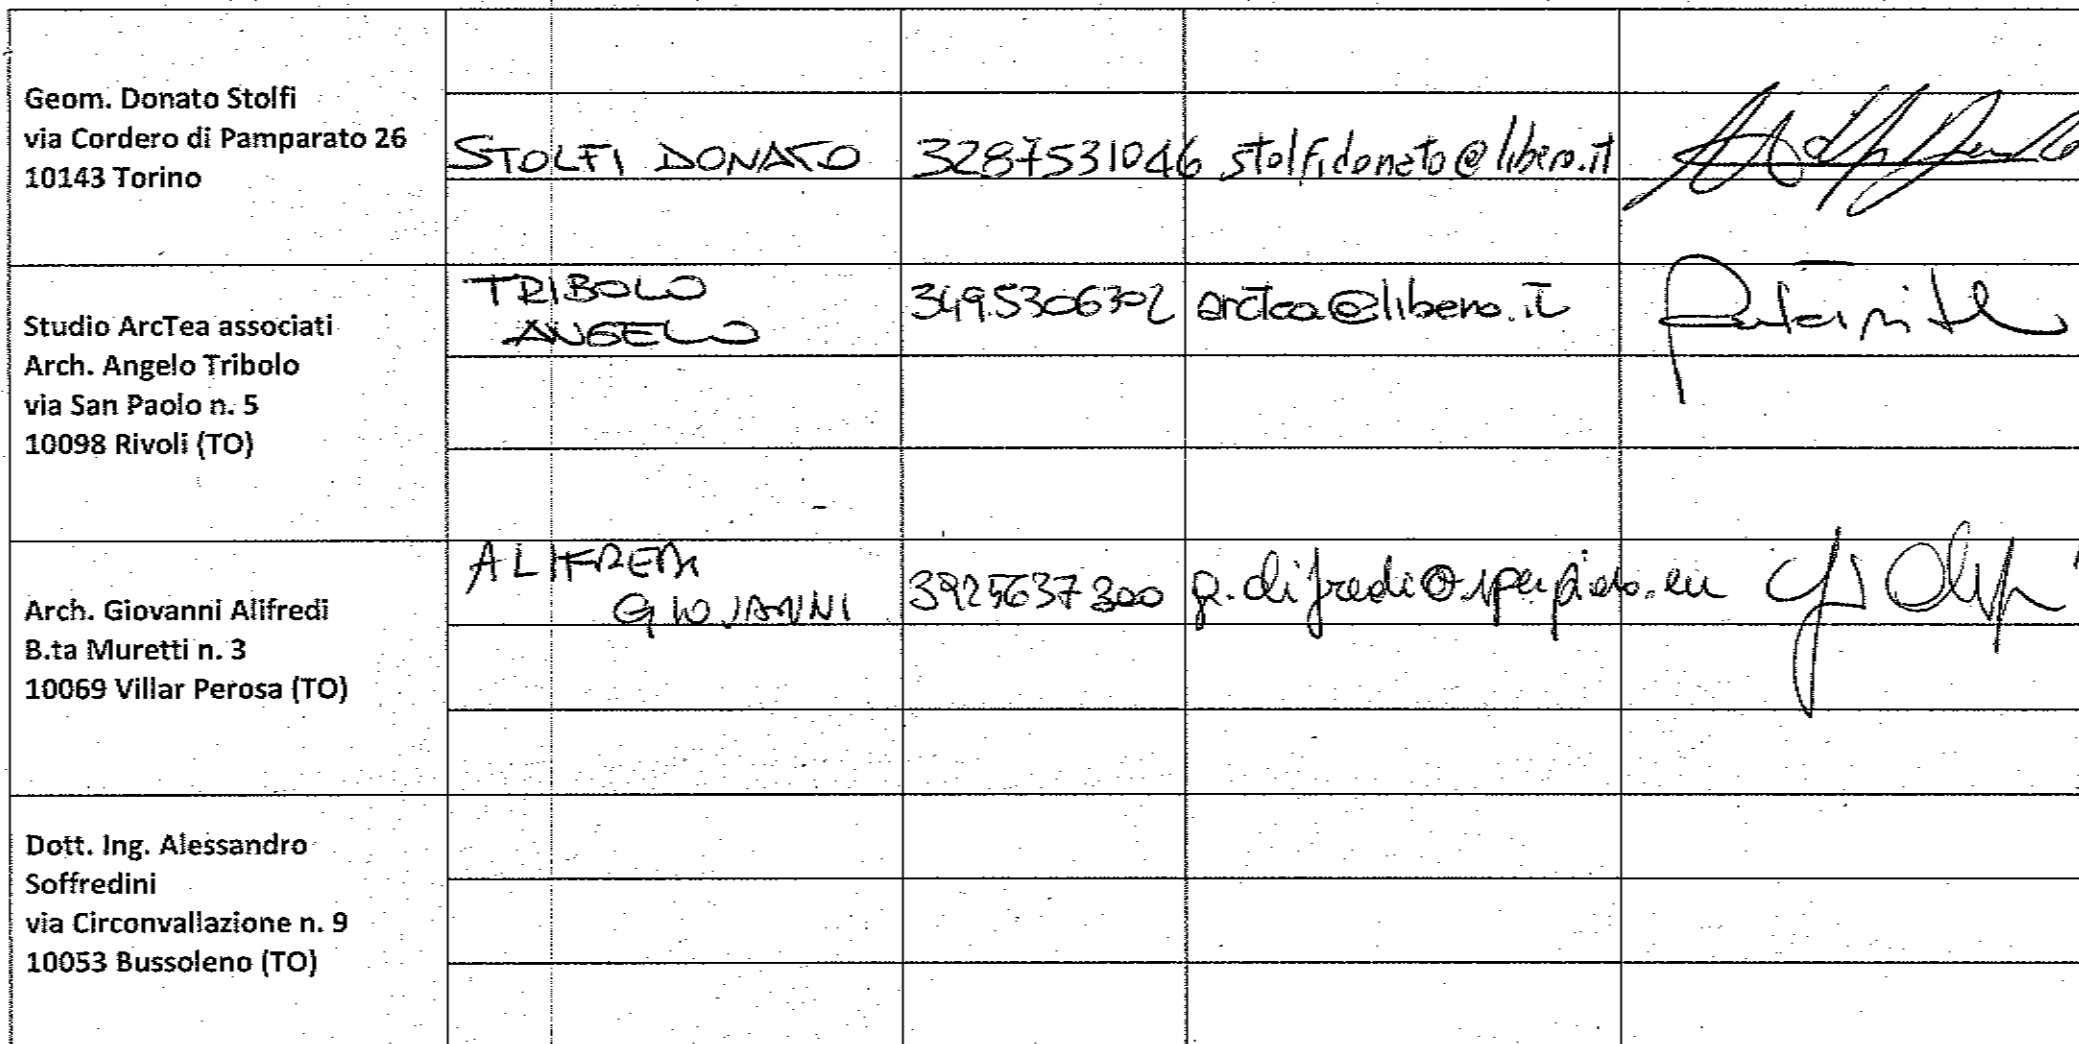 Geom. Donato Stolfi
via Cordero di Pamparato 26
10143 Torino
STOLFI DONATO 3287531046 stolfidonato@libero.it
Studio ArcTea associati
Arch. Angelo Tribolo
via San Paolo n. 5
10098 Rivoli (TO)
TRIBOLO
ANGELO
3495306302 arctea@libero.it
Arch. Giovanni Alifredi
B.ta Muretti n. 3
10069 Villar Perosa (TO)
ALIFREDI
GIOVANNI
3925637300
Dott. Ing. Alessandro
Soffredini
via Circonvallazione n. 9
10053 Bussoleno (TO)